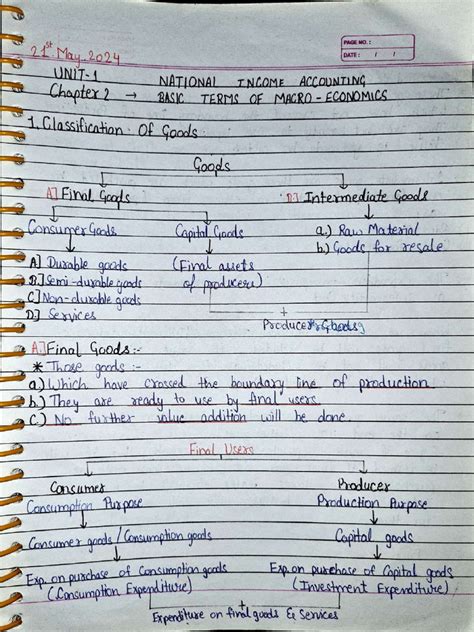 21st May 2024
PAGE NO. :
DATE : / /
UNIT-1 NATIONAL INCOME ACCOUNTING
Chapter 2 → BASIC TERMS OF MACRO-ECONOMICS
1. Classification Of Goods
Goods
A] Final Goods B] Intermediate Goods
Consumer Goods Capital Goods a.) Raw Material
b.) Goods for resale
A] Durable goods (Final assets
B.] Semi-durable goods of producers)
C] Non-durable goods
D.] Services
+
Producer Goods
A.] Final Goods :-
* Those goods :-
a) Which have crossed the boundary line of production
b.) They are ready to use by final users.
C.) No further value addition will be done
Final Users
Consumer Producer
Consumption Purpose Production Purpose
Consumer goods / Consumption goods Capital goods
Exp. on purchase of Consumption goods Exp. on purchase of Capital goods
(Consumption Expenditure) (Investment Expenditure)
+
Expenditure on final goods & Services